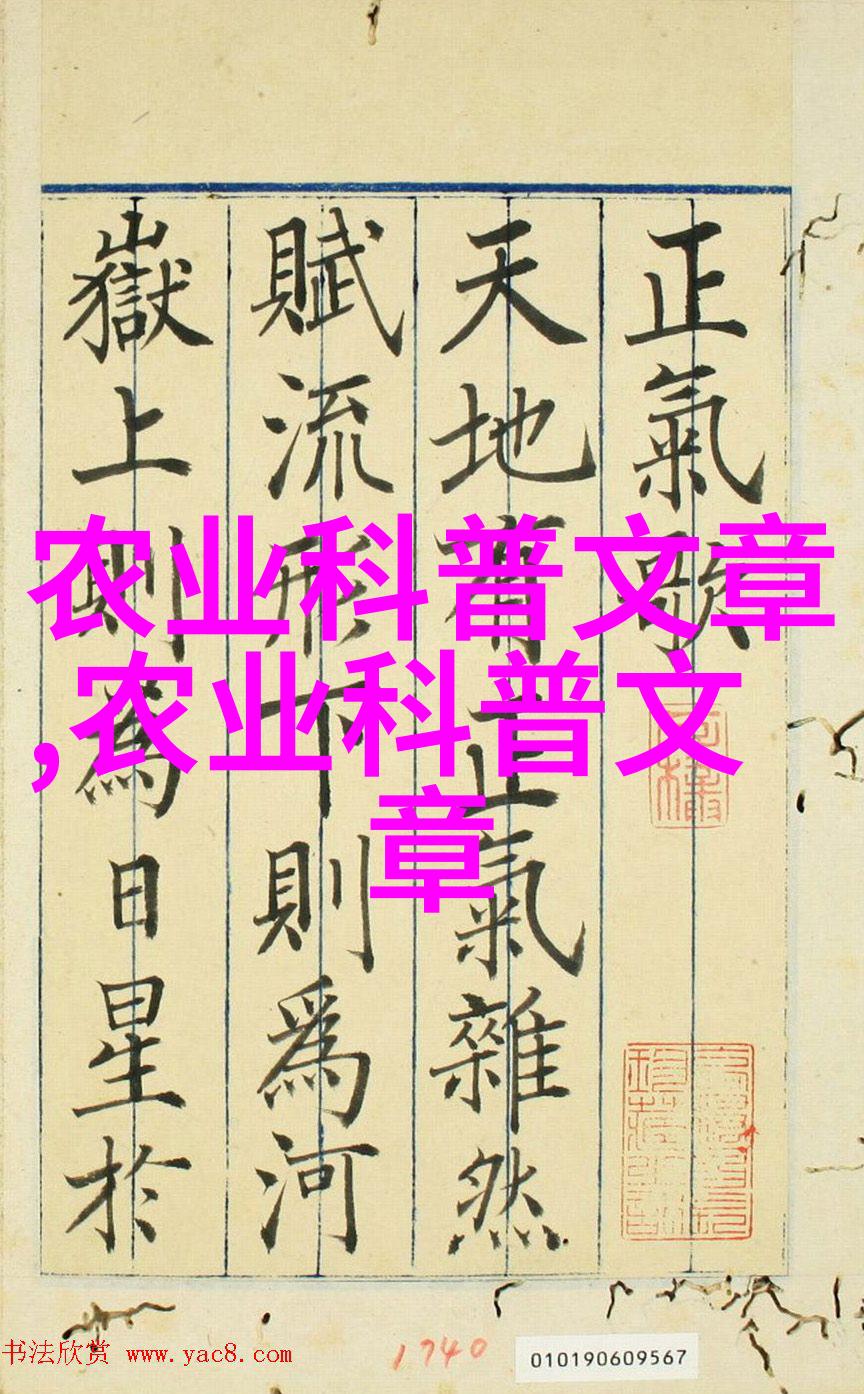 正氣歌
天地有正氣雜然
賦流形下則爲河
嶽上則為日星於
农业科普文章
,农业科普文
章
书法欣赏 www.yac8.com
1740
010190609567